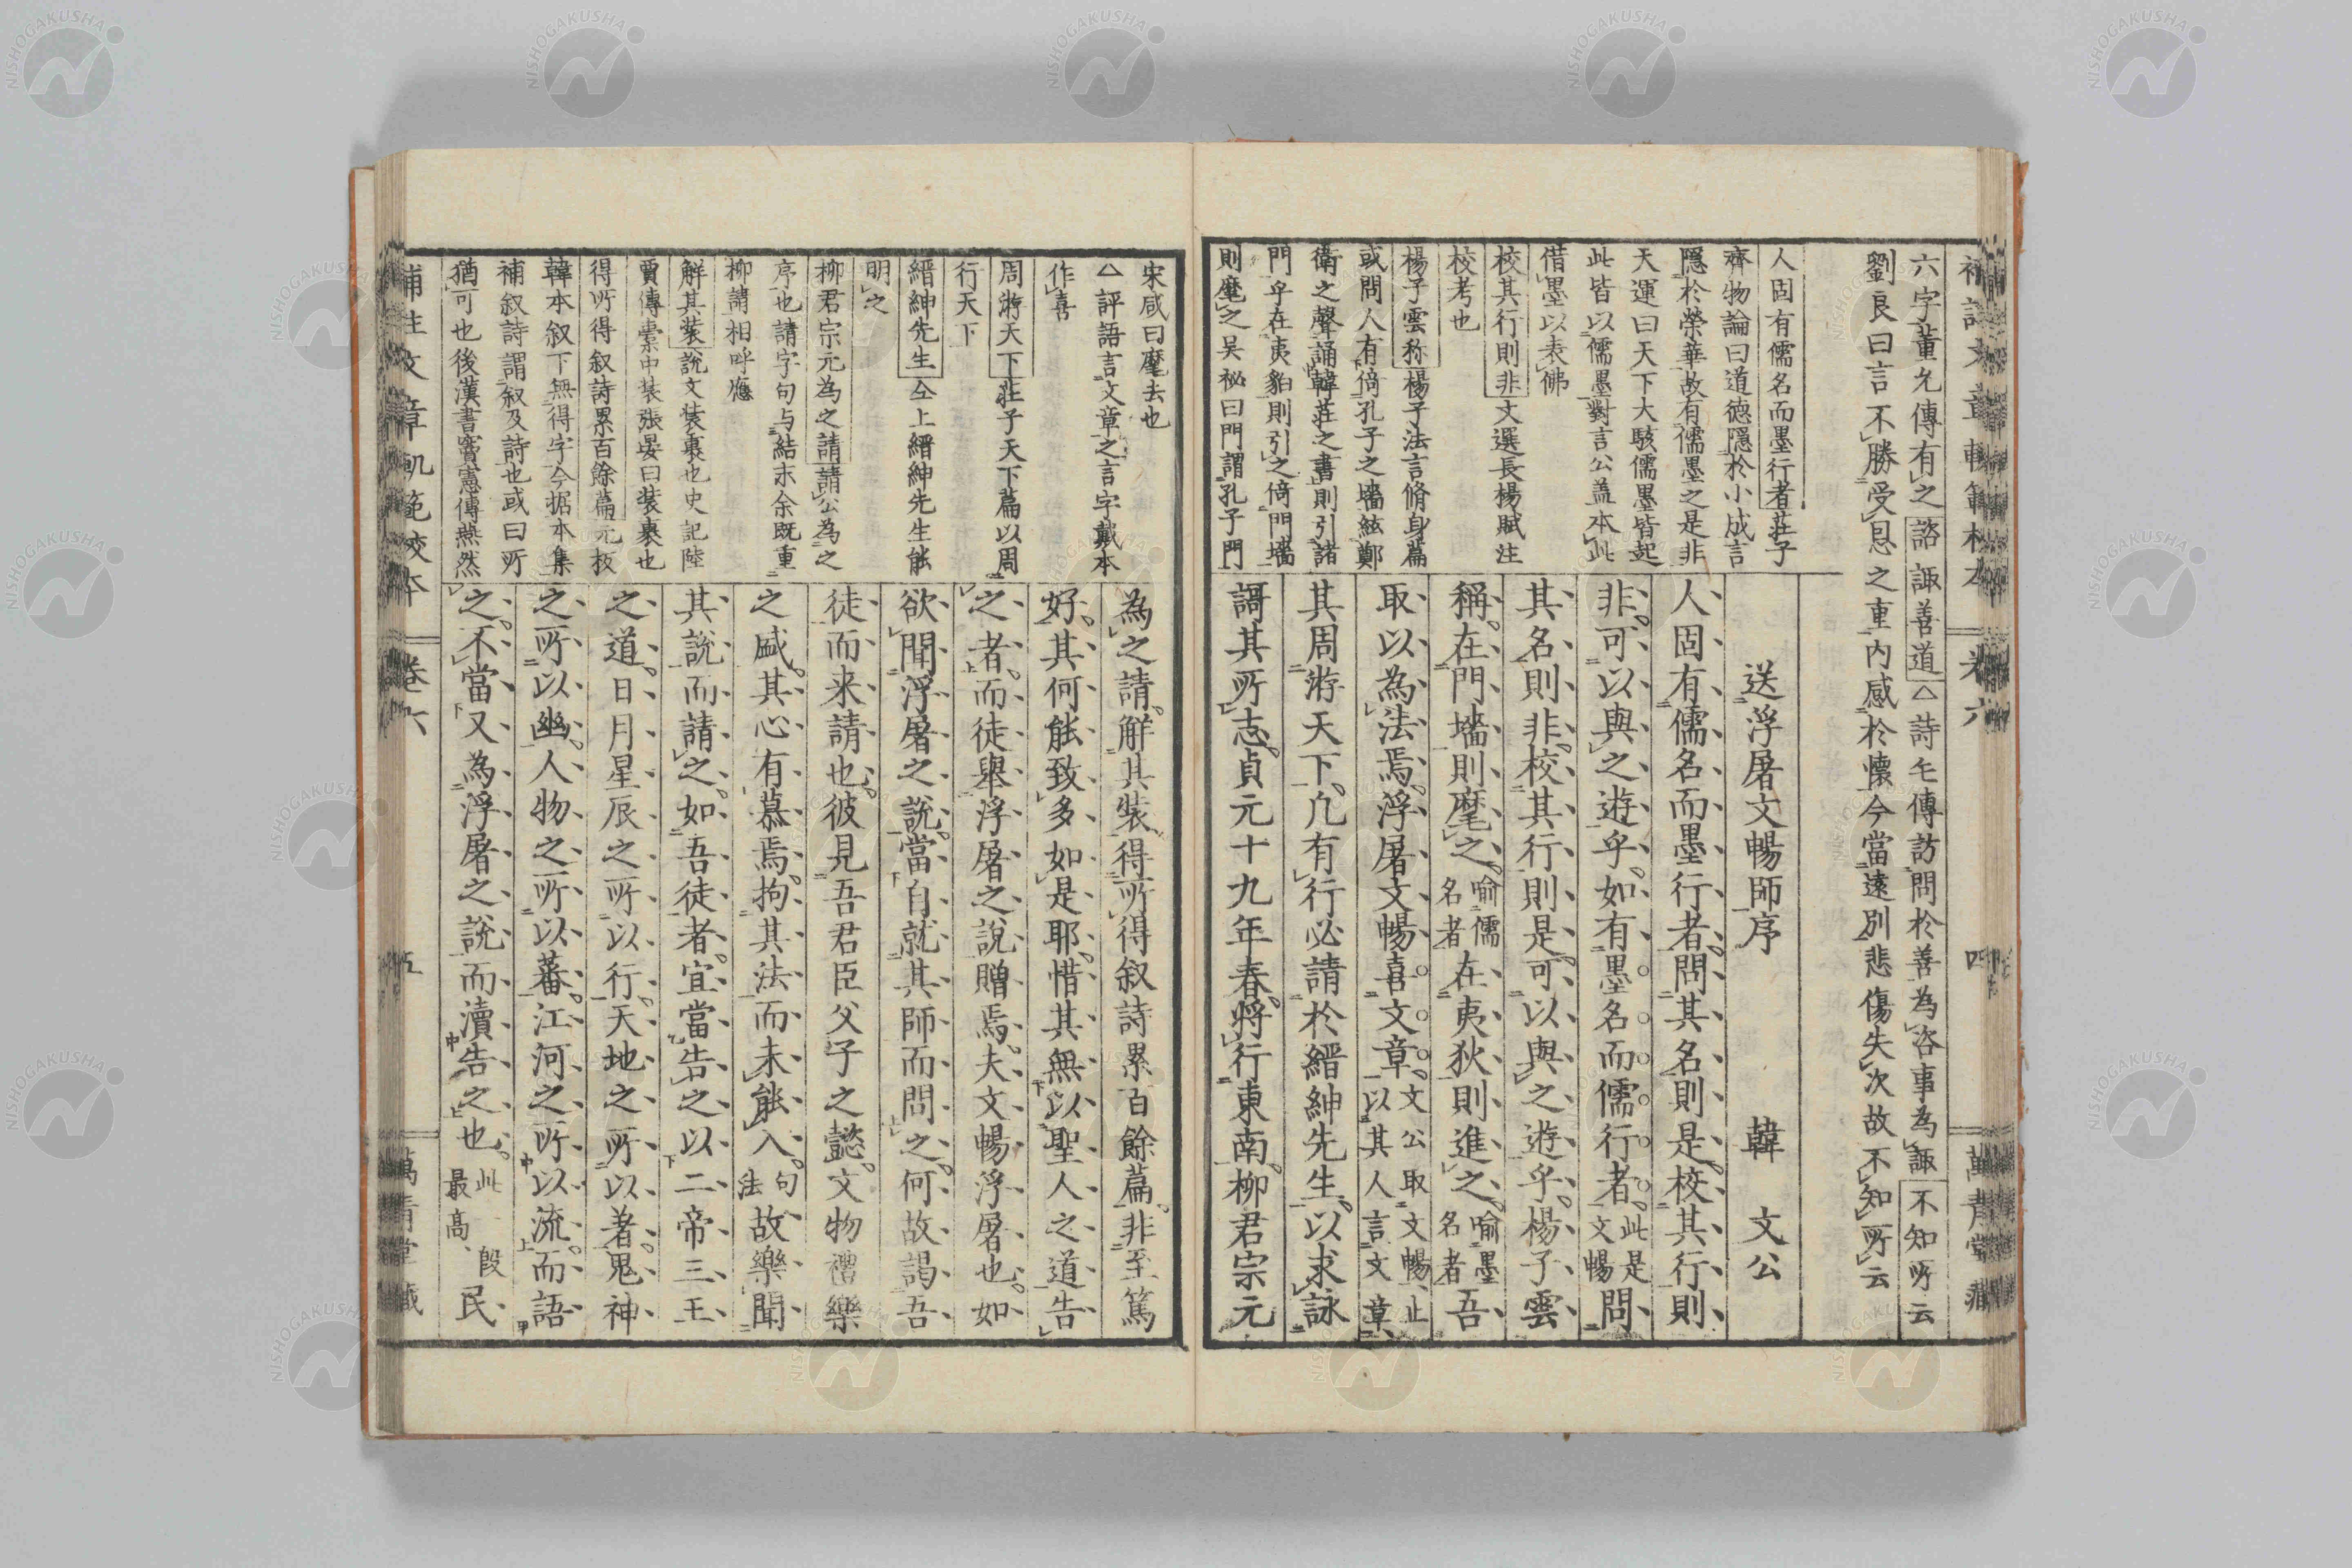 六字董允傳有之諮諏善道△詩毛傳訪問於善為咨事為諏不知所云
劉良曰言不勝受恩之重內感於懷今當遠別悲傷失次故不知所云
人固有儒名而墨行者莊子
齊物論曰道德隱於小成言
隱於榮華故有儒墨之是非
天運曰天下大駭儒墨皆起
此皆以儒墨對言公盖本此
借墨以表佛
校其行則非文選長楊賦注
校考也
楊子雲称楊子法言脩身篇
或問人有倚孔子之墻絃鄭
衛之聲誦韓莊之書則引諸
門乎在夷貊則引之倚門墻
則麾之吳祕曰門謂孔子門
送浮屠文暢師序 韓文公
人固有儒名而墨行者問其名則是校其行則
非可以與之遊乎如有墨名而儒行者此是文暢問
其名則非校其行則是可以與之遊乎楊子雲
稱在門墻則麾之喻儒名者在夷狄則進之喻墨名者吾
取以為法焉浮屠文暢喜文章文公取文暢止以其人言文章
其周游天下凢有行必請於縉紳先生以求詠
謌其所志貞元十九年春將行東南柳君宗元
宋咸曰麾去也
△評語言文章之言字戴本
作喜
周游天下莊子天下篇以周
行天下
縉紳先生仝上縉紳先生能
明之
柳君宗元為之請請公為之
序也請字句与結末余既重
柳請相呼應
解其装說文装裹也史記陸
賈傳橐中装張晏曰装裹也
得所得叙詩累百餘篇元技
韓本叙下無得字今据本集
補叙詩謂叙及詩也或曰所
猶可也後漢書竇憲傳燕然
為之請解其装得所得叙詩累百餘篇非至篤
好其何能致多如是耶惜其無以聖人之道告
之者而徒舉浮屠之說贈焉夫文暢浮屠也如
欲聞浮屠之說當自就其師而問之何故謁吾
徒而来請也彼見吾君臣父子之懿文物禮樂
之盛其心有慕焉拘其法而未能入句法故樂聞
其說而請之如吾徒者宜當告之以二帝三王
之道日月星辰之所以行天地之所以著鬼神
之所以幽人物之所以蕃江河之所以流而語
之不當又為浮屠之說而瀆告之也此段最高民
補註文章軌範校本 卷六 五 萬青堂藏